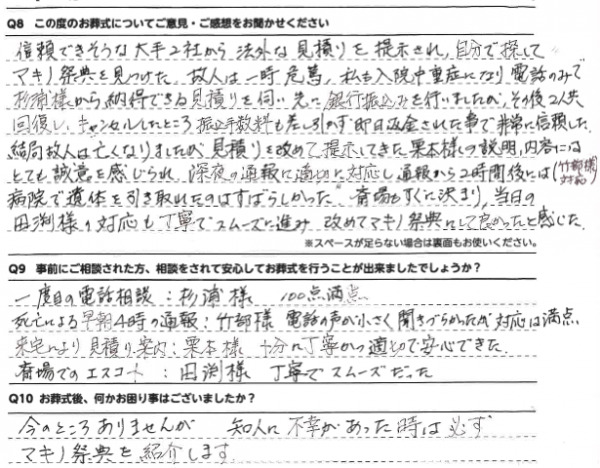 Q8 この度のお葬式についてご意見・ご感想をお聞かせください
信頼できそうな大手2社から 法外な見積りを提示され、自分で探して
マキノ祭典を見つけた。故人は一時危篤、私も入院中重症になり電話のみで
杉浦様から納得できる見積りを伺い先に銀行振込みを行いましたが、その後2人共
回復し、キャンセルしたところ振込手数料も差し引かず即日返金された事で非常に信頼した。
結局故人は亡くなりましたが、見積りを改めて提示してきた栗本様の説明、内容には
とても誠意を感じられ、深夜の通報に適切に対応し通報から2時間後には(竹部様対応)
病院で遺体を引き取れたのはすばらしかった。斎場もすぐに決まり、当日の
田渕様の対応も丁寧でスムーズに進み 改めてマキノ祭典にして良かったと感じた。
※スペースが足らない場合は裏面もお使いください。
Q9 事前にご相談された方、相談をされて安心してお葬式を行うことが出来ましたでしょうか？
一度目の電話相談：杉浦様 100点満点
死亡による早朝4時の通報：竹部様 電話の声が小さく聞きづらかったが対応は満点
来宅により見積り案内：栗本様 十分に丁寧かつ適切で安心できた。
斎場でのエスコート：田渕様 丁寧でスムーズだった
Q10 お葬式後、何かお困り事はございましたか？
今のところありませんが 知人に不幸があった時は必ず
マキノ祭典を紹介します